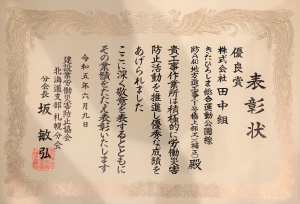 表彰状
優良賞
株式会社 田中組
きたひろしま総合運動公園線
殿
貴工事作業所は積極的に労働災害
防止活動を推進し優秀な成績を
あげられました
ここに深く敬意を表するとともに
その業績をたたえ表彰いたします
令和五年六月九日
建設業労働災害防止協会
北海道支部札幌分会
分会長 坂 敏弘